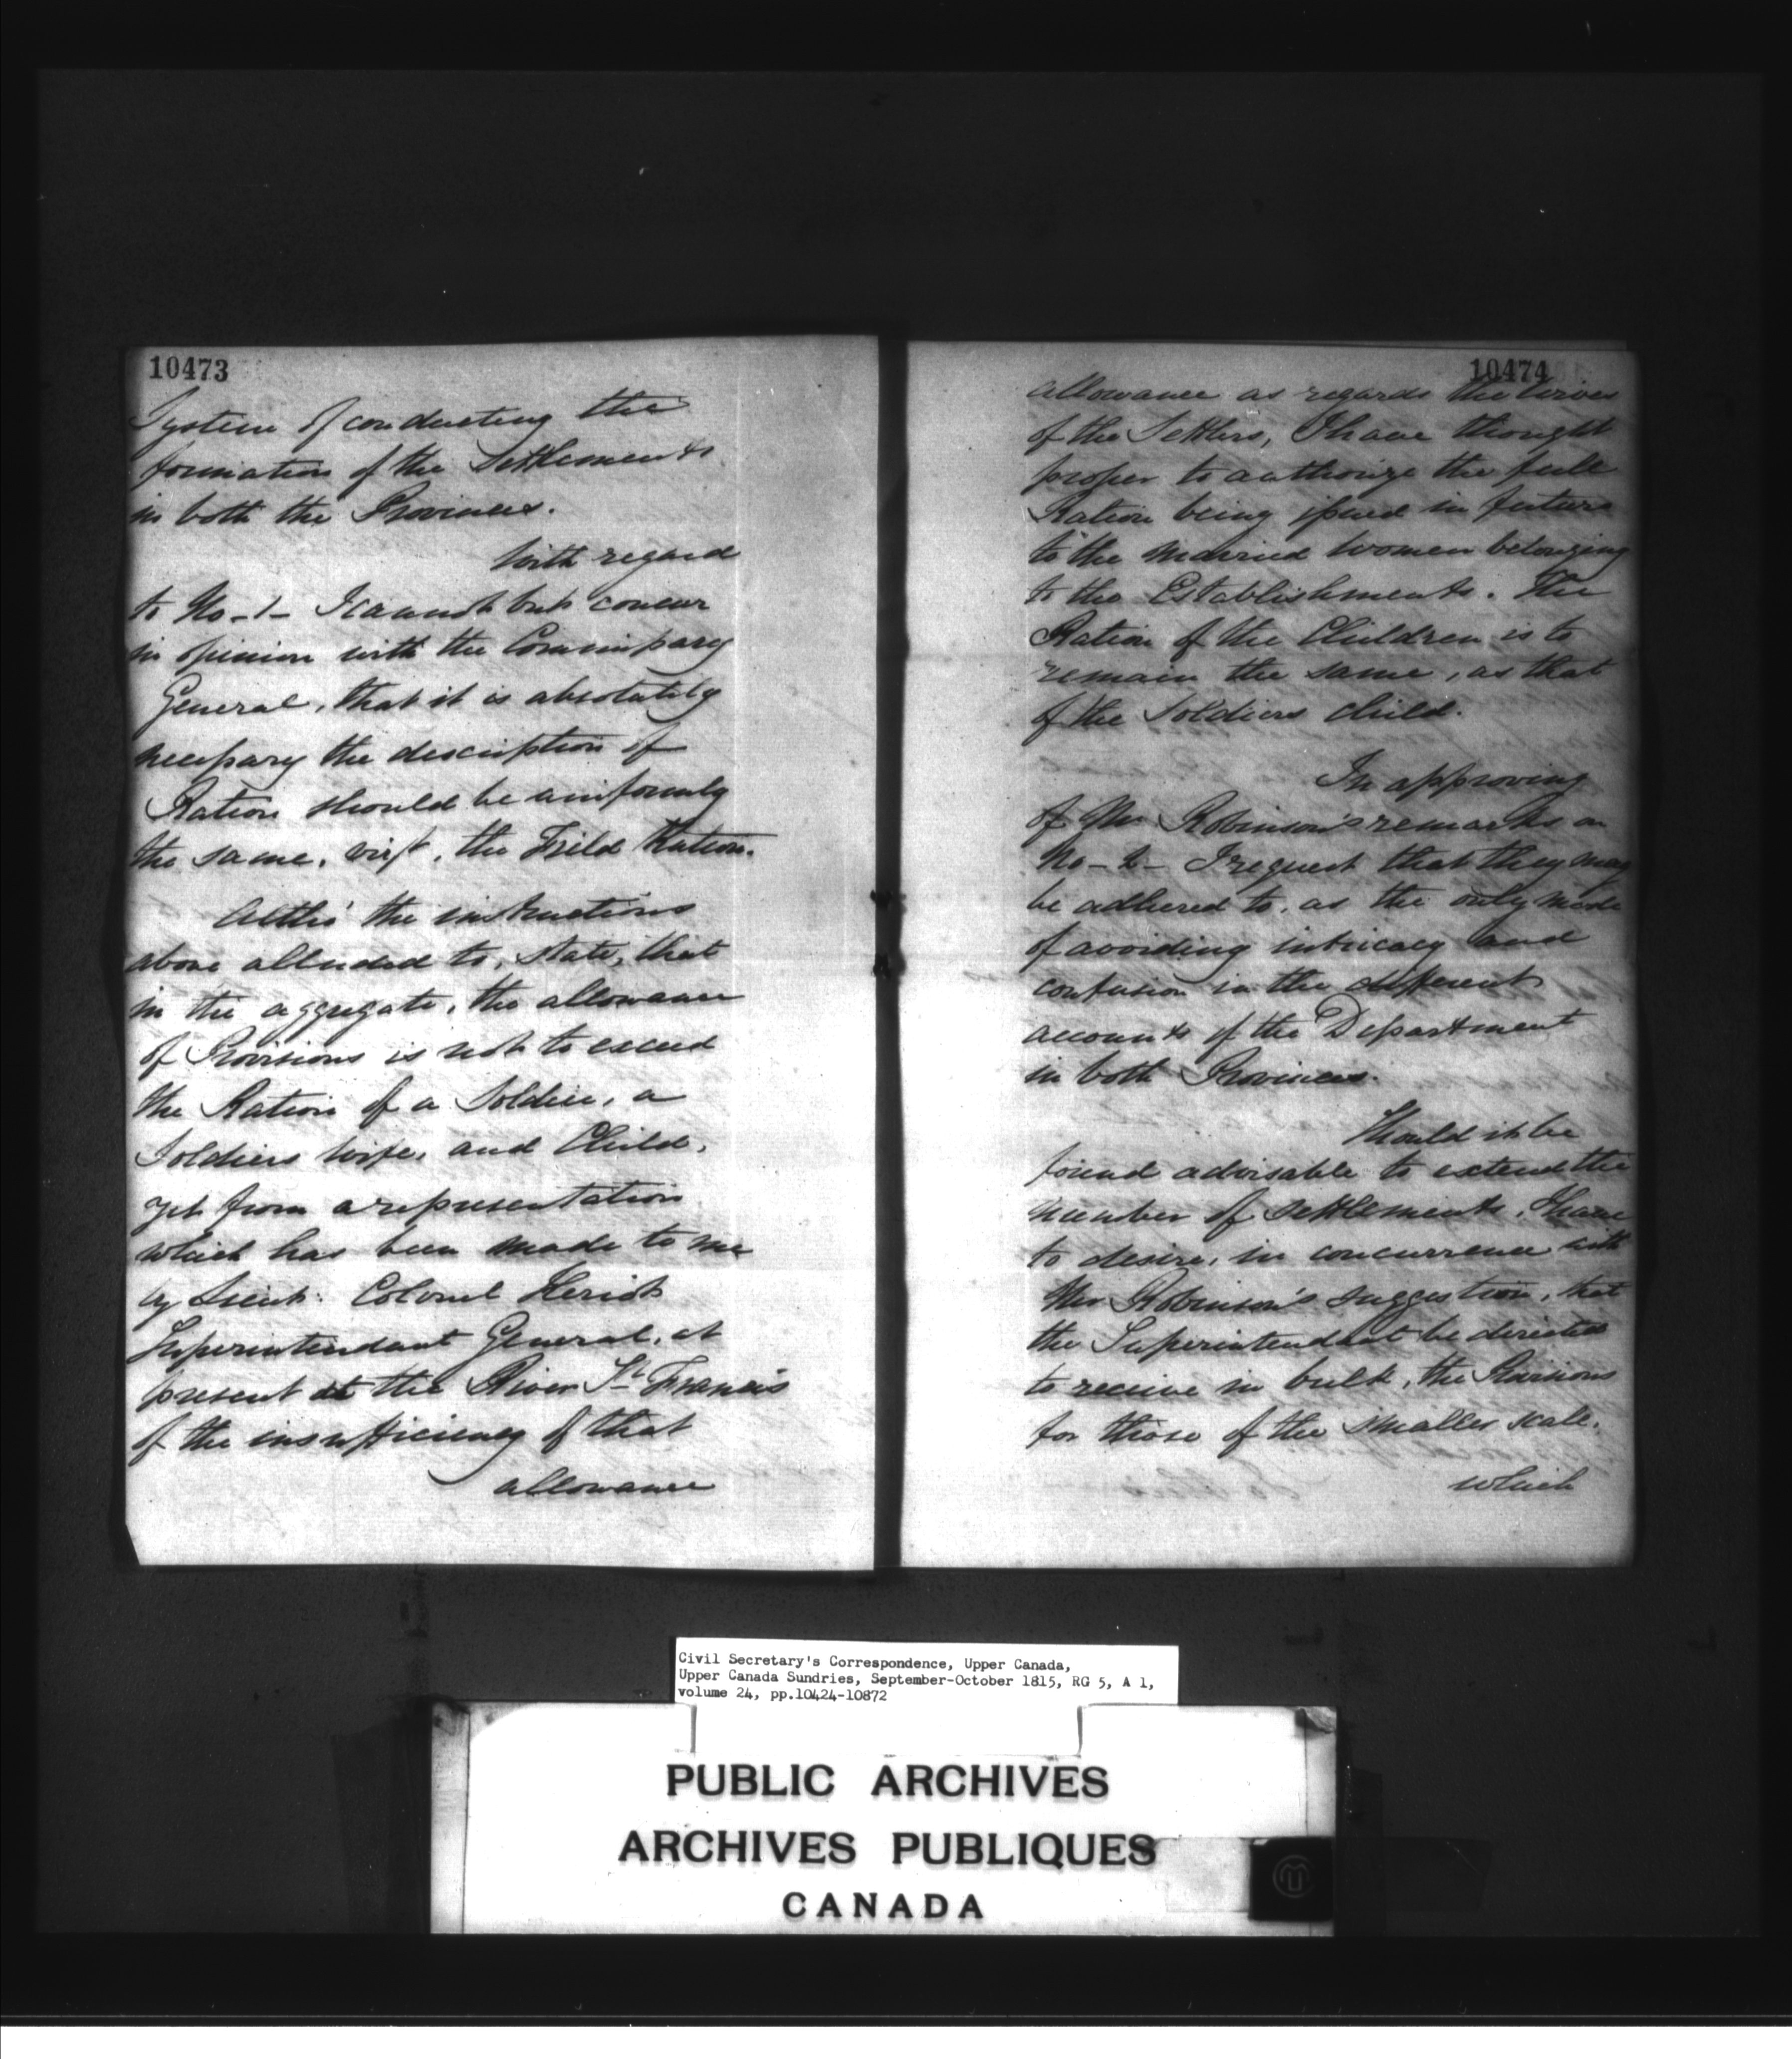 10473
System of conducting the
formation of the Settlements
in both the Provinces.
With regard
to No-1- I cannot but concur
in opinion with the Commissary
General, that it is absolutely
necessary the description of
Ration should be uniformly
the same, vizt, the Field Ration.
Altho' the instructions
above alluded to, state, that
in the aggregate, the allowance
of Provisions is not to exceed
the Ration of a Soldier, a
Soldiers wife, and Child,
yet from a representation
which has been made to me
by Lieut: Colonel Heriot
Superintendant General, at
present at the River St Francis
of the insufficiency of that
allowance
10474
allowance as regards the Wives
of the Settlers, I have thought
proper to authorize the full
Ration being issued in future
to the married women belonging
to the Establishments. The
Ration of the Children is to
remain the same, as that
of the Soldiers child.
In approving
of Mr Robinson's remarks on
No-2- I request that they may
be adhered to, as the only mode
of avoiding intricacy and
confusion in the different
accounts of the Department
in both Provinces.
Should it be
found advisable to extend the
number of Settlements, I have
to desire, in concurrence with
Mr Robinson's suggestion, that
the Superintendant be directed
to receive in bulk, the Provisions
for those of the smaller scale,
which
Civil Secretary's Correspondence, Upper Canada,
Upper Canada Sundries, September-October 1815, RG 5, A 1,
volume 24, pp.10424-10872
PUBLIC ARCHIVES
ARCHIVES PUBLIQUES
CANADA